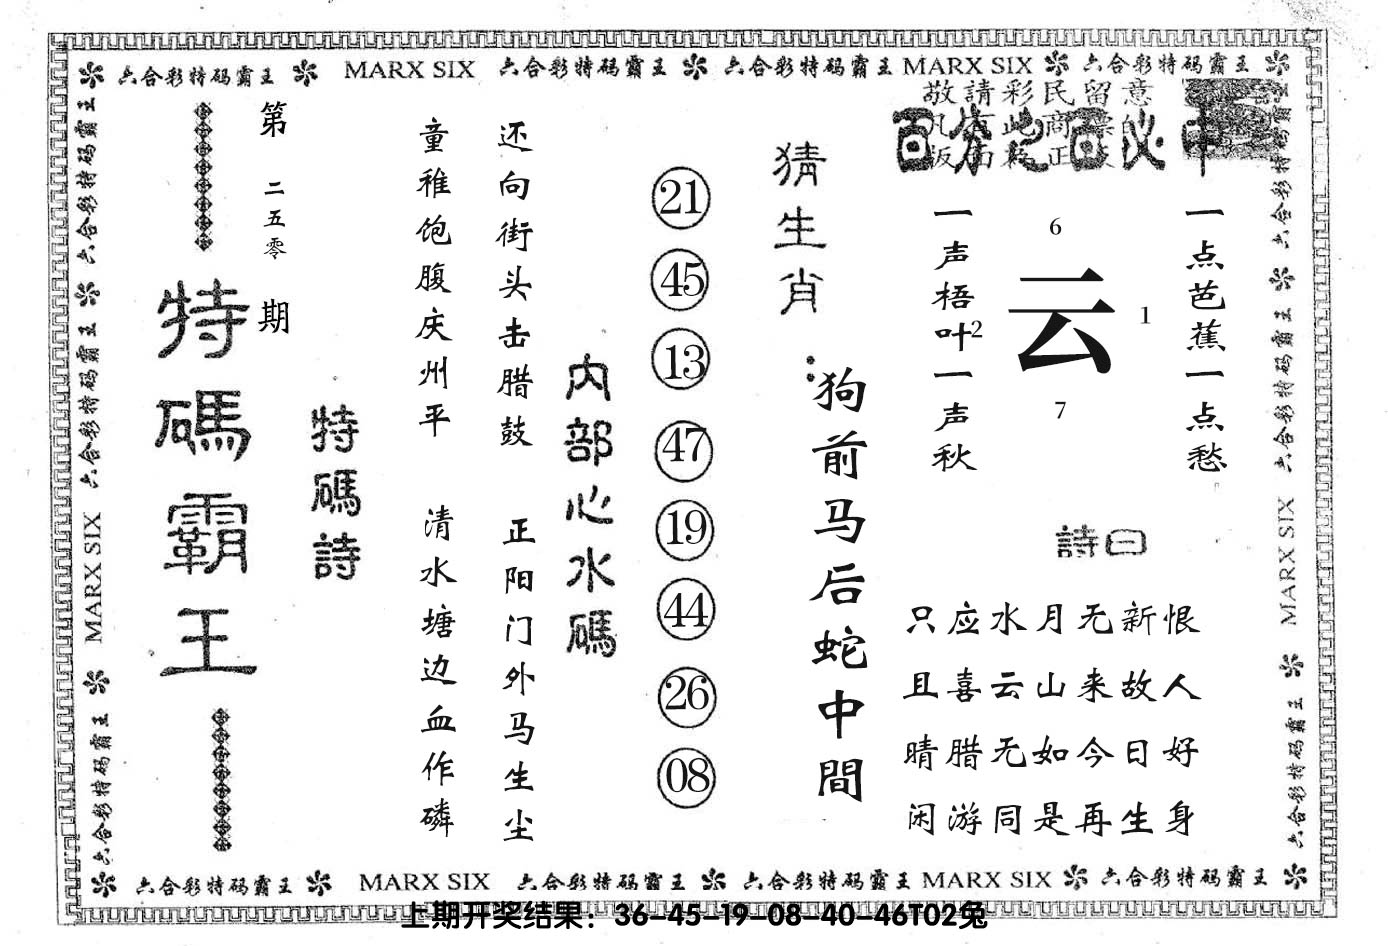 六合彩特码霸王 MARX SIX 六合彩特码霸王 六合彩特码霸王 MARX SIX 六合彩特码霸王
敬請彩民留意
百分之百必中
一点芭蕉一点愁
6
云
1
2
7
一声梧叶一声秋
詩曰
只应水月无新恨
且喜云山来故人
晴腊无如今日好
闲游同是再生身
猜生肖：
狗前马后蛇中間
21
45
13
47
19
44
26
08
内部心水碼
还向街头击腊鼓 正阳门外马生尘
童稚饱腹庆州平 清水塘边血作磷
特碼詩
第二五零期
特碼霸王
六合彩特码霸王 六合彩特码霸王 MARX SIX 六合彩特码霸王
六合彩特码霸王 六合彩特码霸王 MARX SIX 六合彩特码霸王
六合彩特码霸王 MARX SIX 六合彩特码霸王 六合彩特码霸王 MARX SIX 六合彩特码霸王
上期开奖结果：36-45-19-08-40-46T02兔